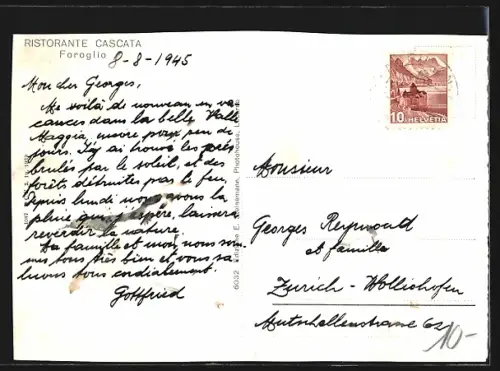 RISTORANTE CASCATA
Foroglio
8-8-1945
Mon cher Georges,
Me voilà de nouveau en va
cances dans la belle Valle
Maggia, encore pour peu de
jours. J'y ai trouvé les prés
brulés par le soleil, et des
forêts détruites pas le feu.
Depuis lundi nous avons la
pluie qui j'espère, laissera
reverdir la nature.
La famille et moi, nous som
mes tous très bien et vous sa
luons tous cordialement.
Gottfried
10 HELVETIA
Monsieur
Georges Reymond
et famille
Zurich-Wollishofen
Mutschellenstrasse 62
10-
6032 E. Steinemann, Photohouse,